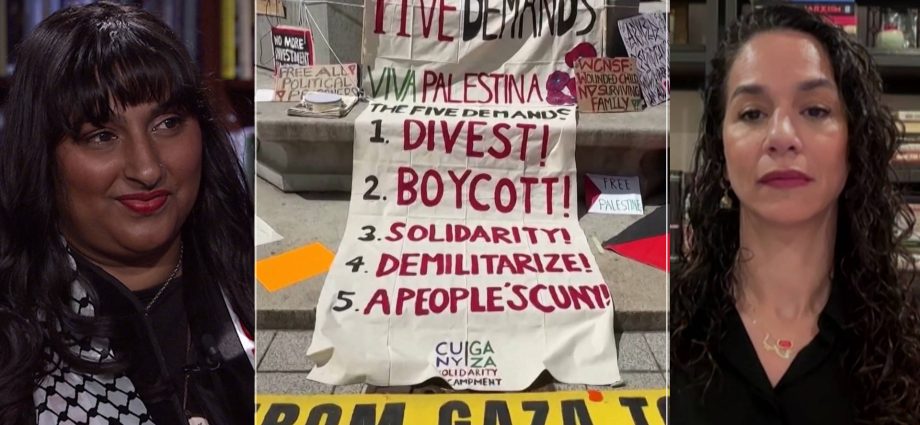 FIVE DEMANDS
NO MORE
INVESTMENT
FREE ALL
POLITICAL
PRISONERS
VIVA PALESTINA
WCNSF:
WOUNDED CHILD
NO SURVIVING
FAMILY
THE FIVE DEMANDS
1. DIVEST!
2. BOYCOTT!
3. SOLIDARITY!
4. DEMILITARIZE!
5. A PEOPLE'S CUNY!
FREE
PALESTINE
CU|GA
NY|ZA
SOLIDARITY
ENCAMPMENT
FROM GAZA TO
MARXISM